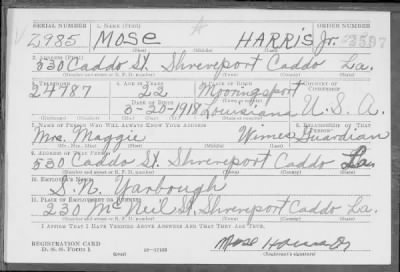 SERIAL NUMBER 1. NAME (Print) ORDER NUMBER
2985 MOSE HARRIS Jr. 3597
(First) (Middle) (Last)
2. ADDRESS (Print)
530 Caddo St. Shreveport Caddo La.
(Number and street or R. F. D. number) (Town) (County) (State)
3. TELEPHONE 4. AGE IN YEARS 5. PLACE OF BIRTH 6. COUNTRY OF CITIZENSHIP
24787 22 Mooringsport
DATE OF BIRTH
3-20-1918 Louisiana U.S.A.
7. NAME OF PERSON WHO WILL ALWAYS KNOW YOUR ADDRESS 8. RELATIONSHIP OF THAT PERSON
Mrs. Maggie Wimes Guardian
(Mr., Mrs., Miss) (First) (Middle) (Last)
9. ADDRESS OF THAT PERSON
530 Caddo St. Shreveport Caddo La.
(Number and street or R. F. D. number) (Town) (County) (State)
10. EMPLOYER'S NAME
S. N. Yarbrough
11. PLACE OF EMPLOYMENT OR BUSINESS
230 McNeil St. Shreveport Caddo La.
(Number and street or R. F. D. number) (Town) (County) (State)
I AFFIRM THAT I HAVE VERIFIED ABOVE ANSWERS AND THAT THEY ARE TRUE.
REGISTRATION CARD
D. S. S. Form 1
Mose
(Registrant's signature)